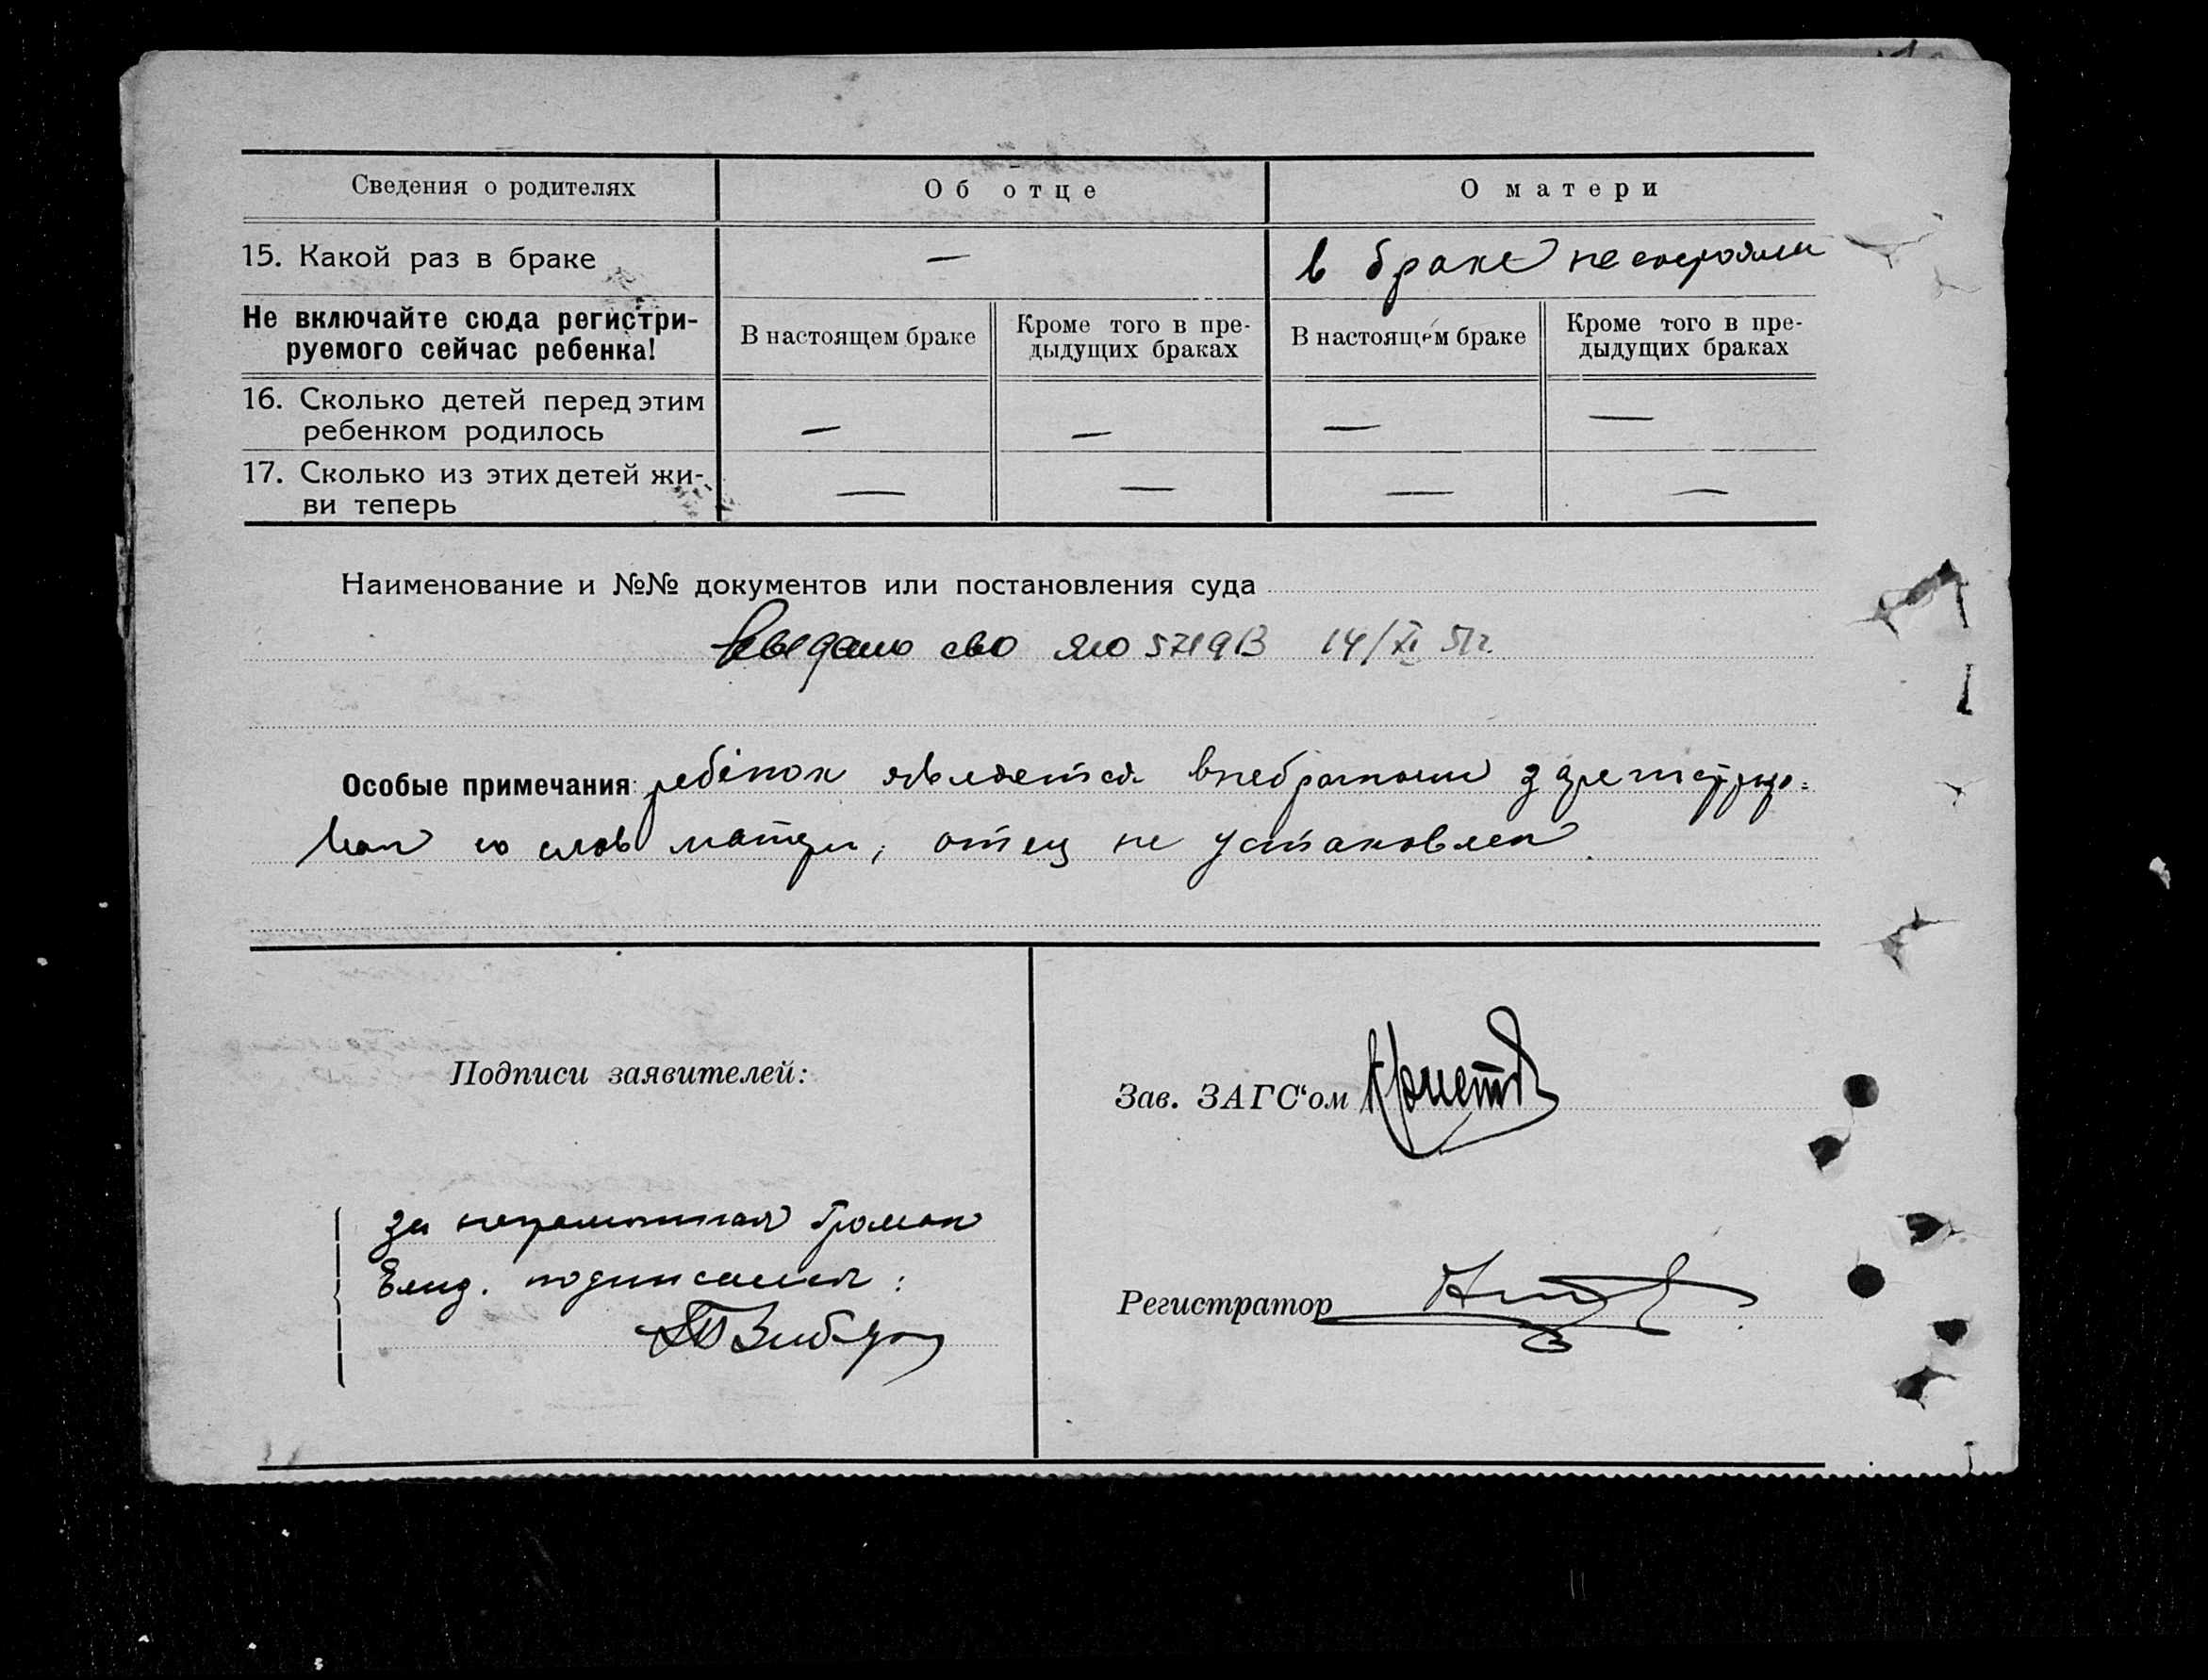 Сведения о родителях
Об отце
О матери
15. Какой раз в браке
—
в браке не состояли
Не включайте сюда регистри-
руемого сейчас ребенка!
В настоящем браке
Кроме того в пре-
дыдущих браках
В настоящем браке
Кроме того в пре-
дыдущих браках
16. Сколько детей перед этим
ребенком родилось
— — — —
17. Сколько из этих детей жи-
ви теперь
— — — —
Наименование и №№ документов или постановления суда
выдано сво 14/XI 51г.
Особые примечания: ребёнок является внебрачным зарегистриро-
ван со слов матери, отец не установлен.
Подписи заявителей:
Зав. ЗАГС“ом
за неграмотная Громак
Елиз. подписался:
Регистратор